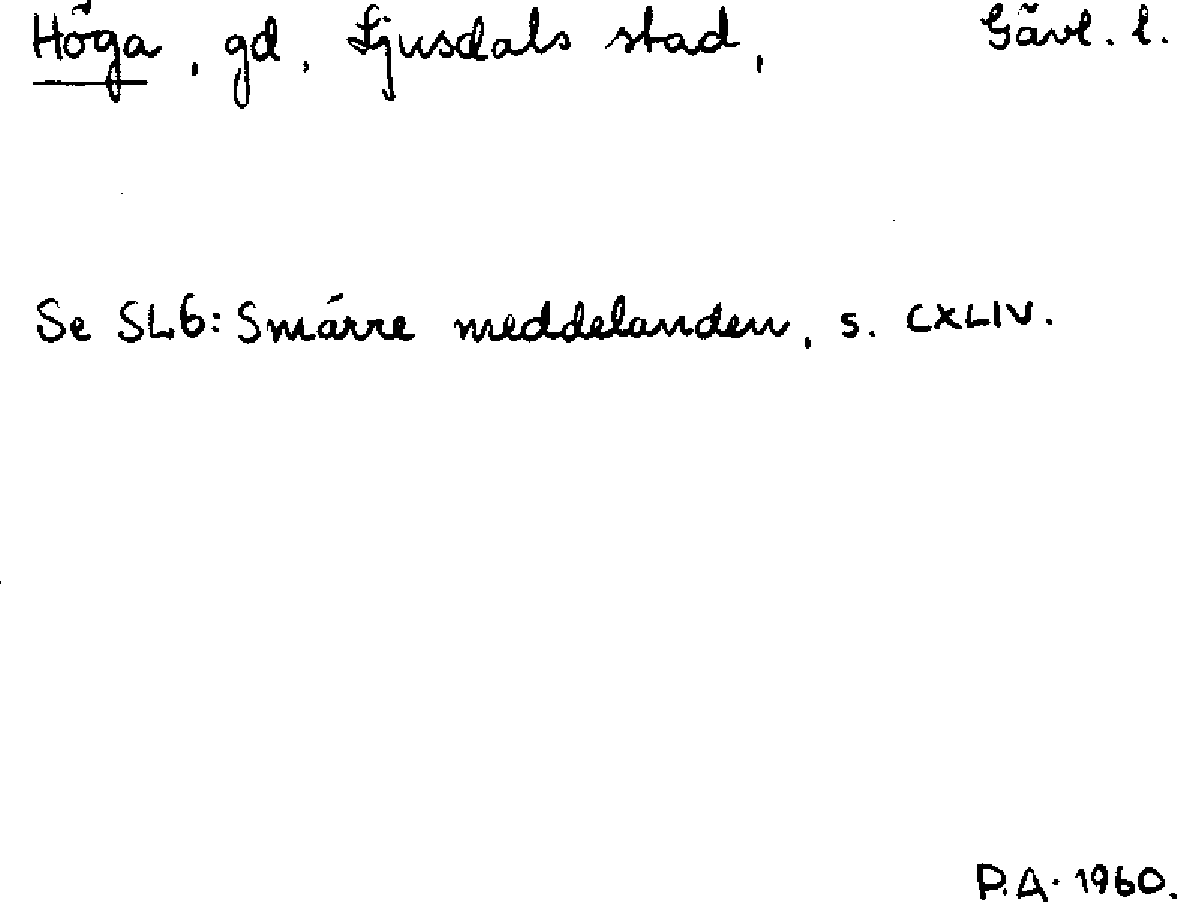 Höga, gd, Ljusdals stad, Gävl. l.
Se SL6: Smärre meddelanden, s. CXLIV.
P.A. 1960.